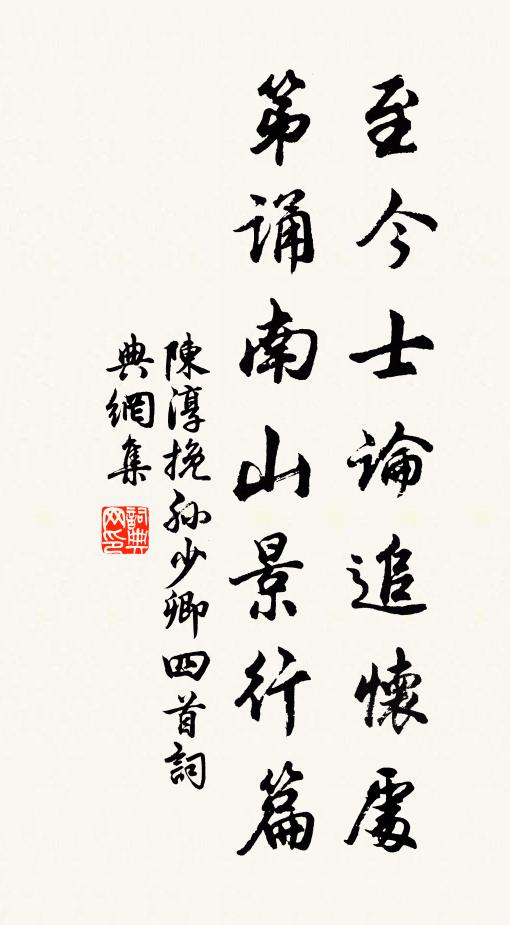 至今士論追懷處
第誦南山景行篇
陳淳挽孫少卿四首詞
典網集
詞典網印